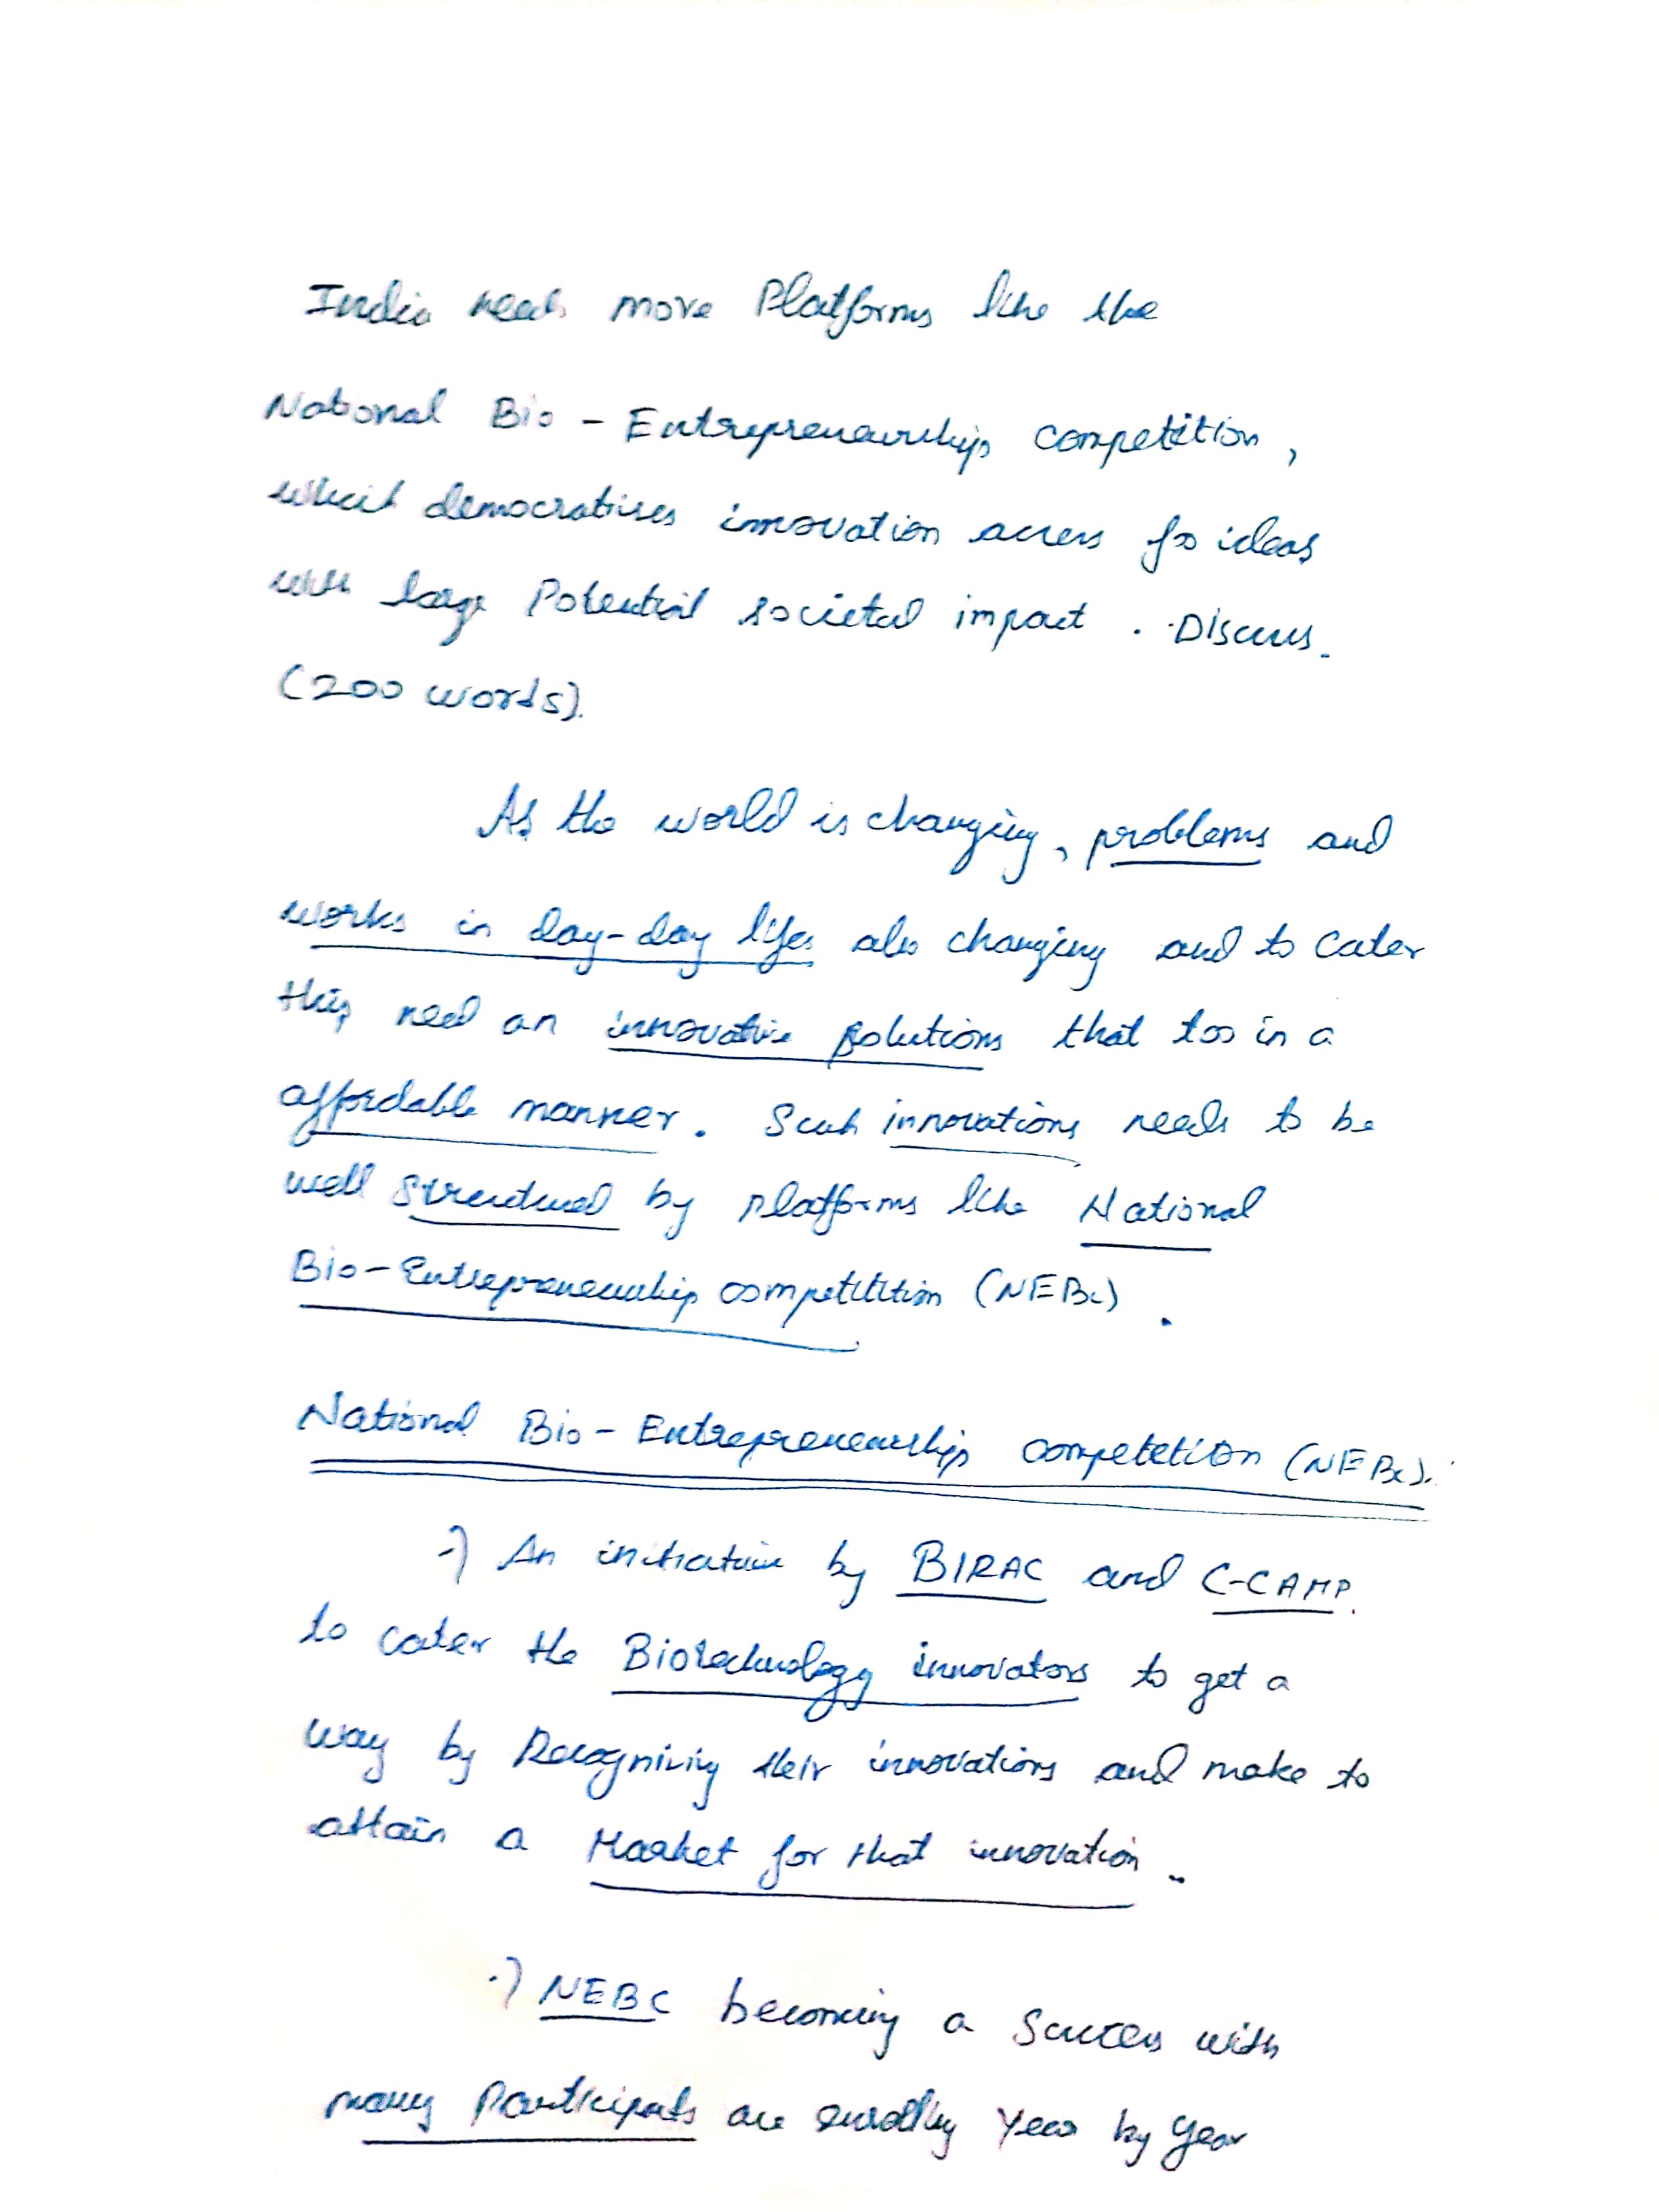 India needs more Platforms like the
National Bio - Entrepreneurship competition,
which democratises innovation access for ideas
with large Potential societal impact. Discuss.
(200 words).
As the world is changing, problems and
works in day-day lifes also changing and to cater
this need an innovative solutions that too in a
affordable manner. Such innovations needs to be
well structured by platforms like National
Bio-Entrepreneurship competitition (NEBC).
National Bio - Entrepreneurship competetion (NEBC).
·) An initiative by BIRAC and C-CAMP.
to cater the Biotechnology innovators to get a
way by Recognizing their innovations and make to
attain a Market for that innovation.
·) NEBC becoming a Success with
many participants are enrolling Year by Year